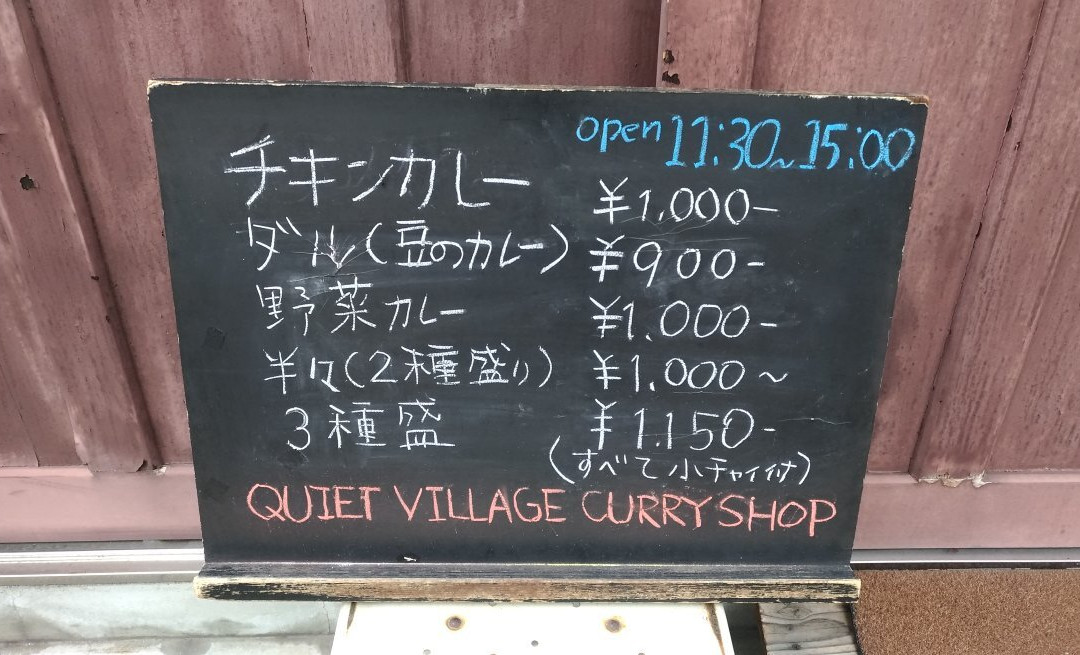 open 11:30~15:00
チキンカレー ¥1,000-
ダル(豆のカレー) ¥900-
野菜カレー ¥1.000-
半々(2種盛り) ¥1.000~
3種盛 ¥1.150-
(すべて小チャイ付)
QUIET VILLAGE CURRY SHOP